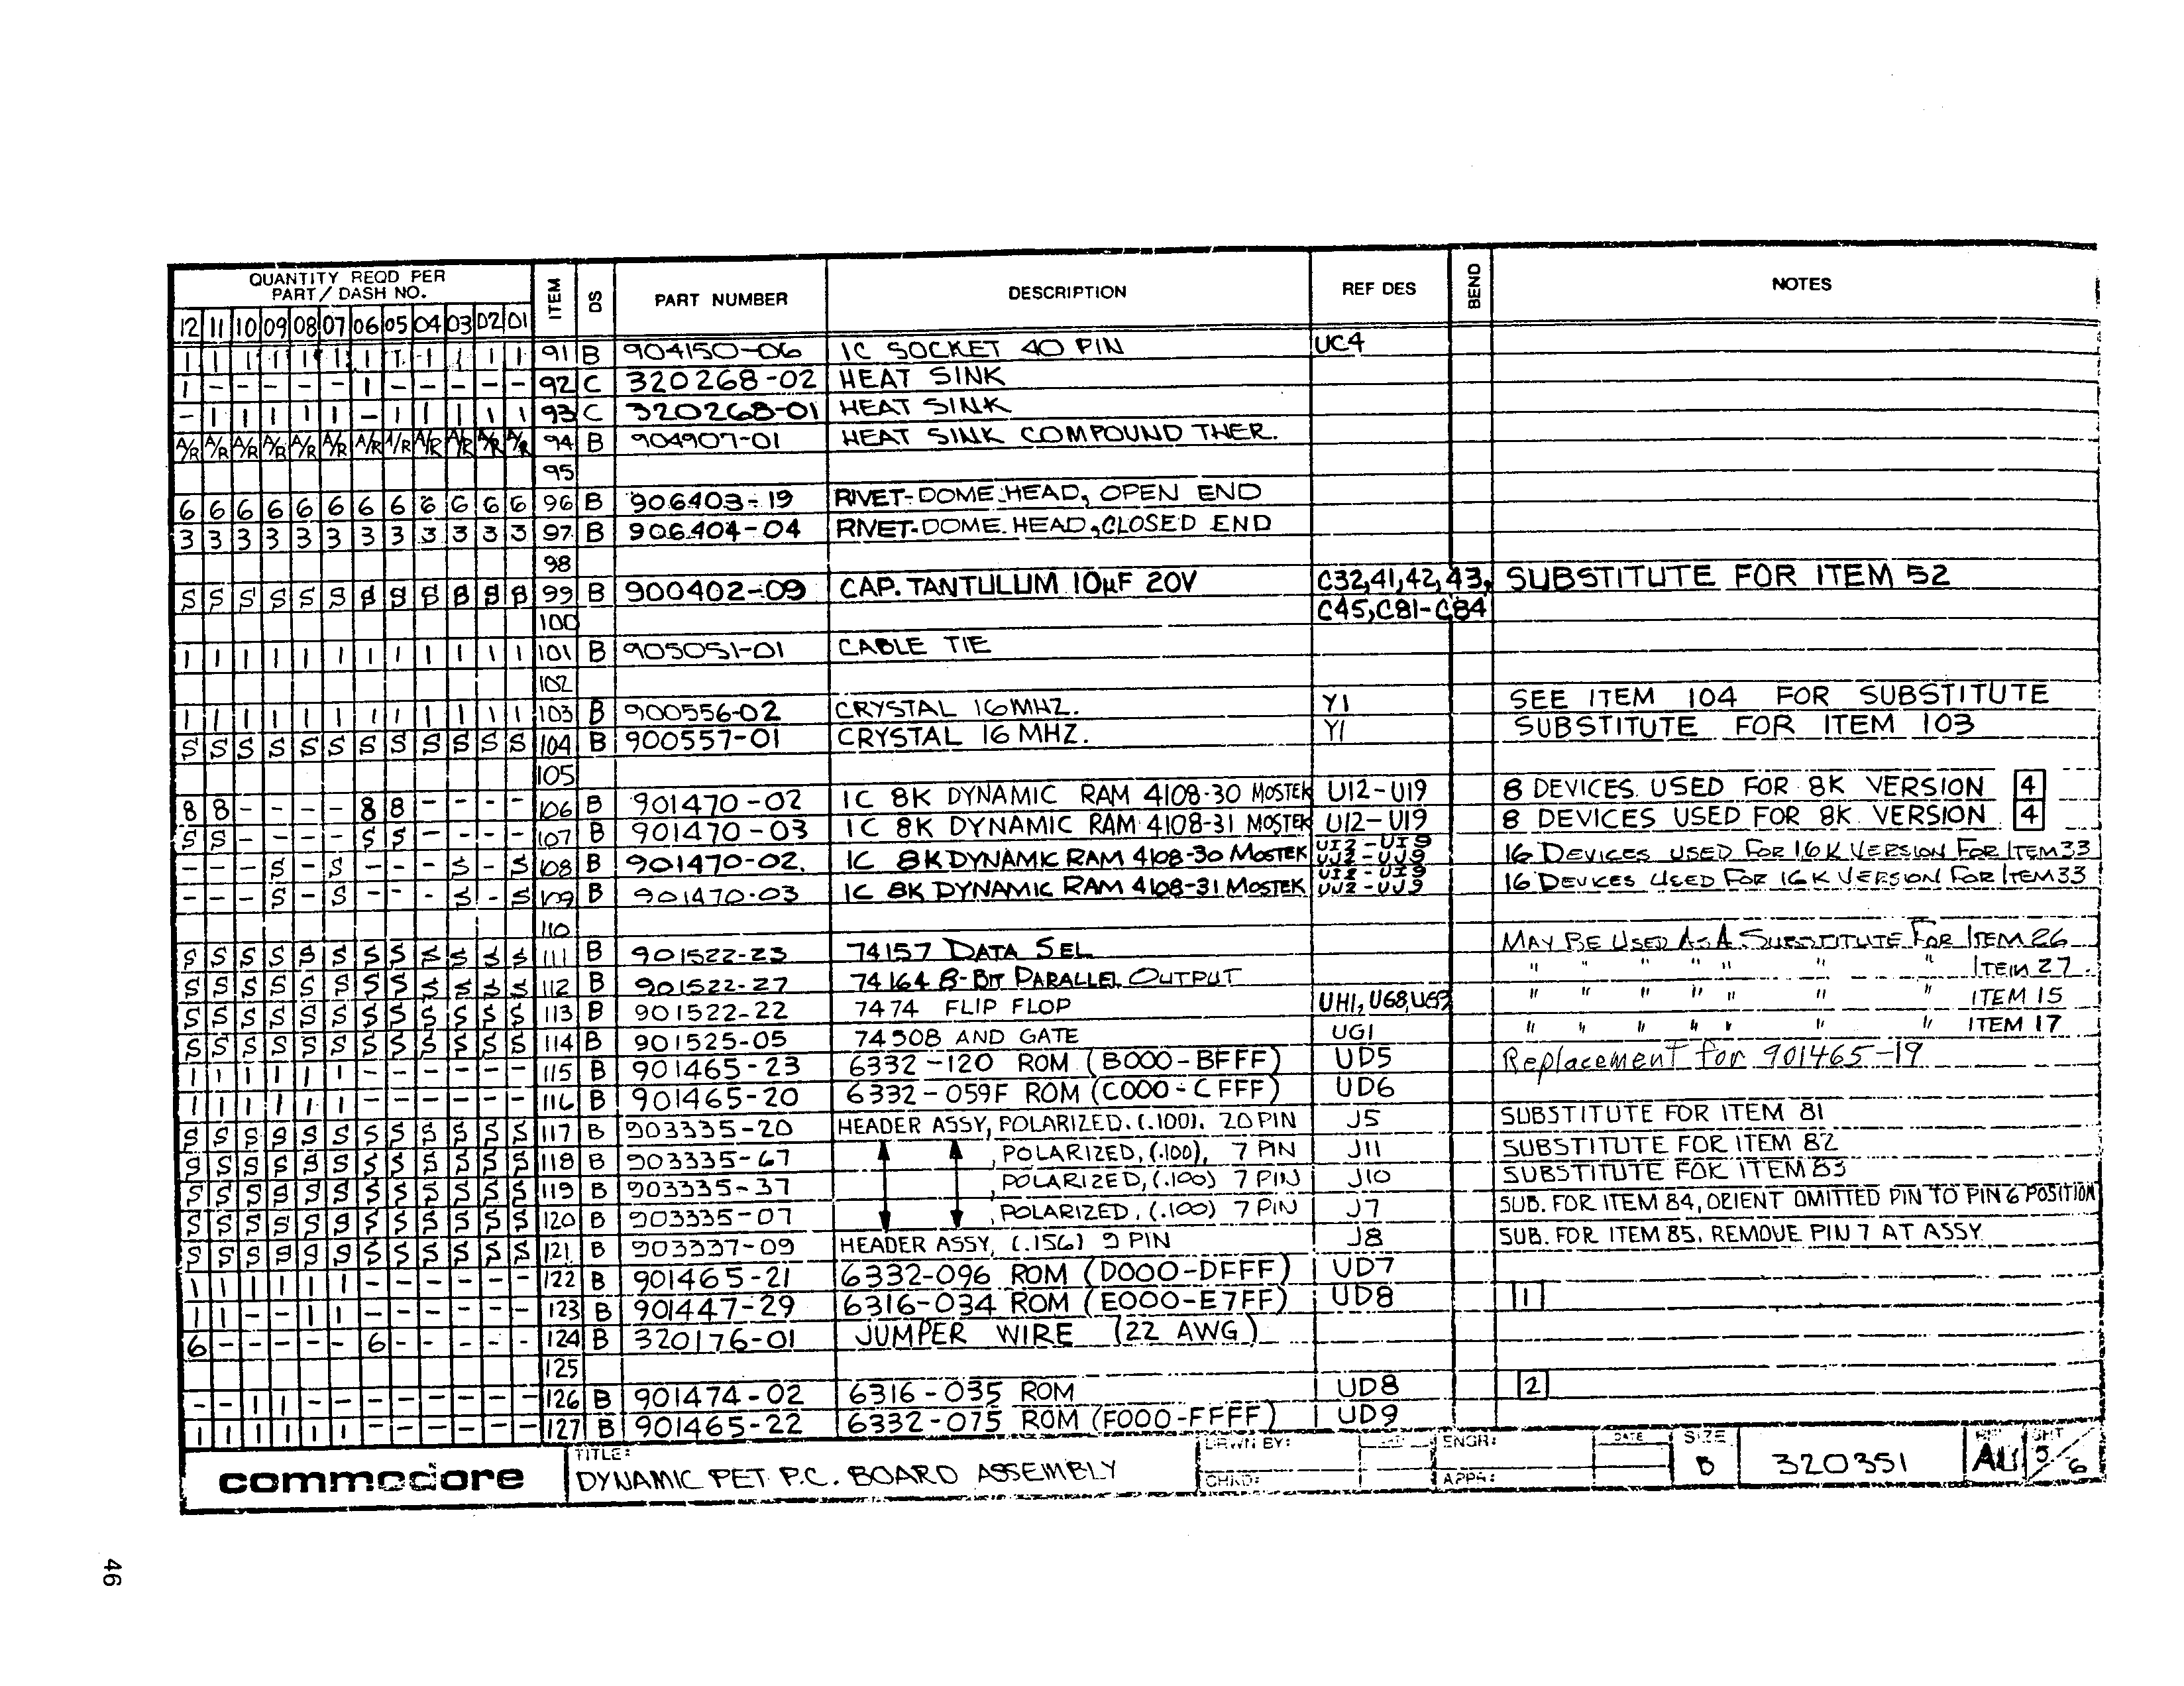 QUANTITY REQD PER
PART / DASH NO.
ITEM DS PART NUMBER DESCRIPTION REF DES BEND NOTES
12 11 10 09 08 07 06 05 04 03 02 01
1 1 1 1 1 1 1 1 1 1 1 1 91 B 904150-06 IC SOCKET 40 PIN UC4
1 - - - - - 1 - - - - - 92 C 320268-02 HEAT SINK
- 1 1 1 1 1 - 1 1 1 1 1 93 C 320268-01 HEAT SINK
A/R A/R A/R A/R A/R A/R A/R A/R A/R A/R A/R A/R 94 B 904907-01 HEAT SINK COMPOUND THER.
95
6 6 6 6 6 6 6 6 6 6 6 6 96 B 906403-19 RIVET-DOME HEAD, OPEN END
3 3 3 3 3 3 3 3 3 3 3 3 97 B 906404-04 RIVET-DOME HEAD, CLOSED END
98
S S S S S S S S S S S S 99 B 900402-09 CAP. TANTULUM 10µF 20V C32,41,42,43, SUBSTITUTE FOR ITEM 52
100 C45,C81-C84
1 1 1 1 1 1 1 1 1 1 1 1 101 B 905051-01 CABLE TIE
102
1 1 1 1 1 1 1 1 1 1 1 1 103 B 900556-02 CRYSTAL 16MHZ. Y1 SEE ITEM 104 FOR SUBSTITUTE
S S S S S S S S S S S S 104 B 900557-01 CRYSTAL 16 MHZ. Y1 SUBSTITUTE FOR ITEM 103
105
8 8 - - - - 8 8 - - - - 106 B 901470-02 IC 8K DYNAMIC RAM 4108-30 MOSTEK UI2-UI9 8 DEVICES USED FOR 8K VERSION 4
S S - - - - S S - - - - 107 B 901470-03 IC 8K DYNAMIC RAM 4108-31 MOSTEK UI2-UI9 8 DEVICES USED FOR 8K VERSION 4
- - - S - S - - - S - S 108 B 901470-02. IC 8K DYNAMIC RAM 4108-30 MOSTEK UI2-UI9 UJ2-UJ9 16 DEVICES USED FOR 16K VERSION FOR ITEM 33
- - - S - S - - - S - S 109 B 901470-03 IC 8K DYNAMIC RAM 4108-31 MOSTEK UI2-UI9 UJ2-UJ9 16 DEVICES USED FOR 16K VERSION FOR ITEM 33
110
S S S S S S S S S S S S 111 B 901522-23 74157 DATA SEL MAY BE USED AS A SUBSTITUTE FOR ITEM 26
S S S S S S S S S S S S 112 B 901522-27 74164 8-BIT PARALLEL OUTPUT " " " " " " " ITEM 27
S S S S S S S S S S S S 113 B 901522-22 7474 FLIP FLOP UH1, UG8, UG9 " " " " " " " ITEM 15
S S S S S S S S S S S S 114 B 901525-05 74S08 AND GATE UG1 " " " " " " " ITEM 17
1 1 1 1 1 1 - - - - - - 115 B 901465-23 6332-120 ROM (B000-BFFF) UD5 Replacement for 901465-19
1 1 1 1 1 1 - - - - - - 116 B 901465-20 6332-059F ROM (C000-CFFF) UD6
S S S S S S S S S S S S 117 B 903335-20 HEADER ASSY, POLARIZED, (.100), 20 PIN J5 SUBSTITUTE FOR ITEM 81
S S S S S S S S S S S S 118 B 903335-67 , POLARIZED, (.100), 7 PIN J11 SUBSTITUTE FOR ITEM 82
S S S S S S S S S S S S 119 B 903335-37 , POLARIZED, (.100) 7 PIN J10 SUBSTITUTE FOR ITEM 83
S S S S S S S S S S S S 120 B 903335-07 , POLARIZED, (.100) 7 PIN J7 SUB. FOR ITEM 84, ORIENT OMITTED PIN TO PIN 6 POSITION
S S S S S S S S S S S S 121 B 903337-09 HEADER ASSY, (.156) 9 PIN J8 SUB. FOR ITEM 85. REMOVE PIN 7 AT ASSY
1 1 1 1 1 1 - - - - - - 122 B 901465-21 6332-096 ROM (D000-DFFF) UD7
1 1 - - 1 1 - - - - - - 123 B 901447-29 6316-034 ROM (E000-E7FF) UD8 1
6 - - - - - 6 - - - - - 124 B 320176-01 JUMPER WIRE (22 AWG)
125
- - 1 1 - - - - - - - - 126 B 901474-02 6316-035 ROM UD8 2
1 1 1 1 1 1 - - - - - - 127 B 901465-22 6332-075 ROM (F000-FFFF) UD9
commodore
TITLE:
DYNAMIC PET P.C. BOARD ASSEMBLY
DRWN BY:
CHKD:
ENGR:
APPR:
DATE
SIZE
B
320351
SHT
5/6
46